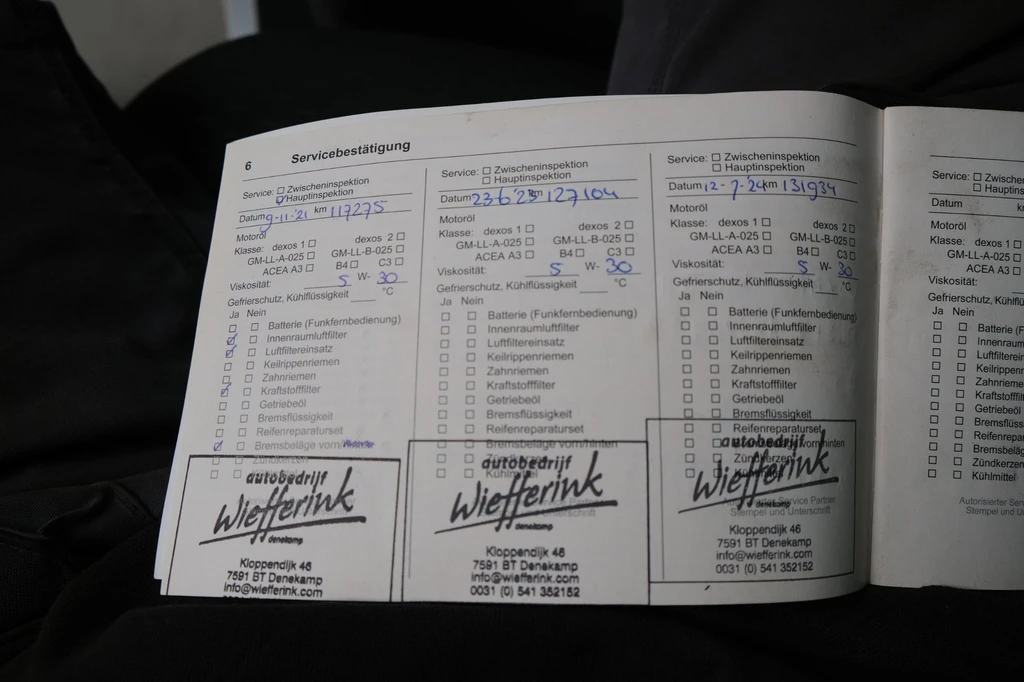 6 Servicebestätigung
Service: Zwischeninspektion
Hauptinspektion
Datum 9-11-'21 km 117275
Motoröl
Klasse: dexos 1 dexos 2
GM-LL-A-025 GM-LL-B-025
ACEA A3 B4 C3
Viskosität: 5 W- 30
Gefrierschutz, Kühlflüssigkeit °C
Ja Nein
Batterie (Funkfernbedienung)
Innenraumluftfilter
Luftfiltereinsatz
Keilrippenriemen
Zahnriemen
Kraftstofffilter
Getriebeöl
Bremsflüssigkeit
Reifenreparaturset
Bremsbeläge vorn/
Zündkerzen
autobedrijf
Wiefferink
denekamp
Kloppendijk 46
7591 BT Denekamp
info@wiefferink.com
Service: Zwischeninspektion
Hauptinspektion
Datum 23-6-'23 km 127104
Motoröl
Klasse: dexos 1 dexos 2
GM-LL-A-025 GM-LL-B-025
ACEA A3 B4 C3
Viskosität: 5 W- 30
Gefrierschutz, Kühlflüssigkeit °C
Ja Nein
Batterie (Funkfernbedienung)
Innenraumluftfilter
Luftfiltereinsatz
Keilrippenriemen
Zahnriemen
Kraftstofffilter
Getriebeöl
Bremsflüssigkeit
Reifenreparaturset
Bremsbeläge vorn/hinten
Zündkerzen
Kühlmittel
autobedrijf
Wiefferink
denekamp
Unterschrift
Kloppendijk 46
7591 BT Denekamp
info@wiefferink.com
0031 (0) 541 352152
Service: Zwischeninspektion
Hauptinspektion
Datum 12-7-'24 km 131934
Motoröl
Klasse: dexos 1 dexos 2
GM-LL-A-025 GM-LL-B-025
ACEA A3 B4 C3
Viskosität: 5 W- 30
Gefrierschutz, Kühlflüssigkeit °C
Ja Nein
Batterie (Funkfernbedienung)
Innenraumluftfilter
Luftfiltereinsatz
Keilrippenriemen
Zahnriemen
Kraftstofffilter
Getriebeöl
Bremsflüssigkeit
Reifenreparaturset
vorn/hinten
Zündkerzen
autobedrijf
Wiefferink
denekamp
Service Partner
Stempel und Unterschrift
Kloppendijk 46
7591 BT Denekamp
info@wiefferink.com
0031 (0) 541 352152
Service: Zwischeninspe
Hauptinspektion
Datum km
Motoröl
Klasse: dexos 1
GM-LL-A-025
ACEA A3
Viskosität:
Gefrierschutz, Kühlflüssigk
Ja Nein
Batterie (F
Innenraum
Luftfiltereins
Keilrippenri
Zahnrieme
Kraftstofffilt
Getriebeöl
Bremsflüss
Reifenrepara
Bremsbeläg
Zündkerzen
Kühlmittel
Autorisierter Serv
Stempel und Un